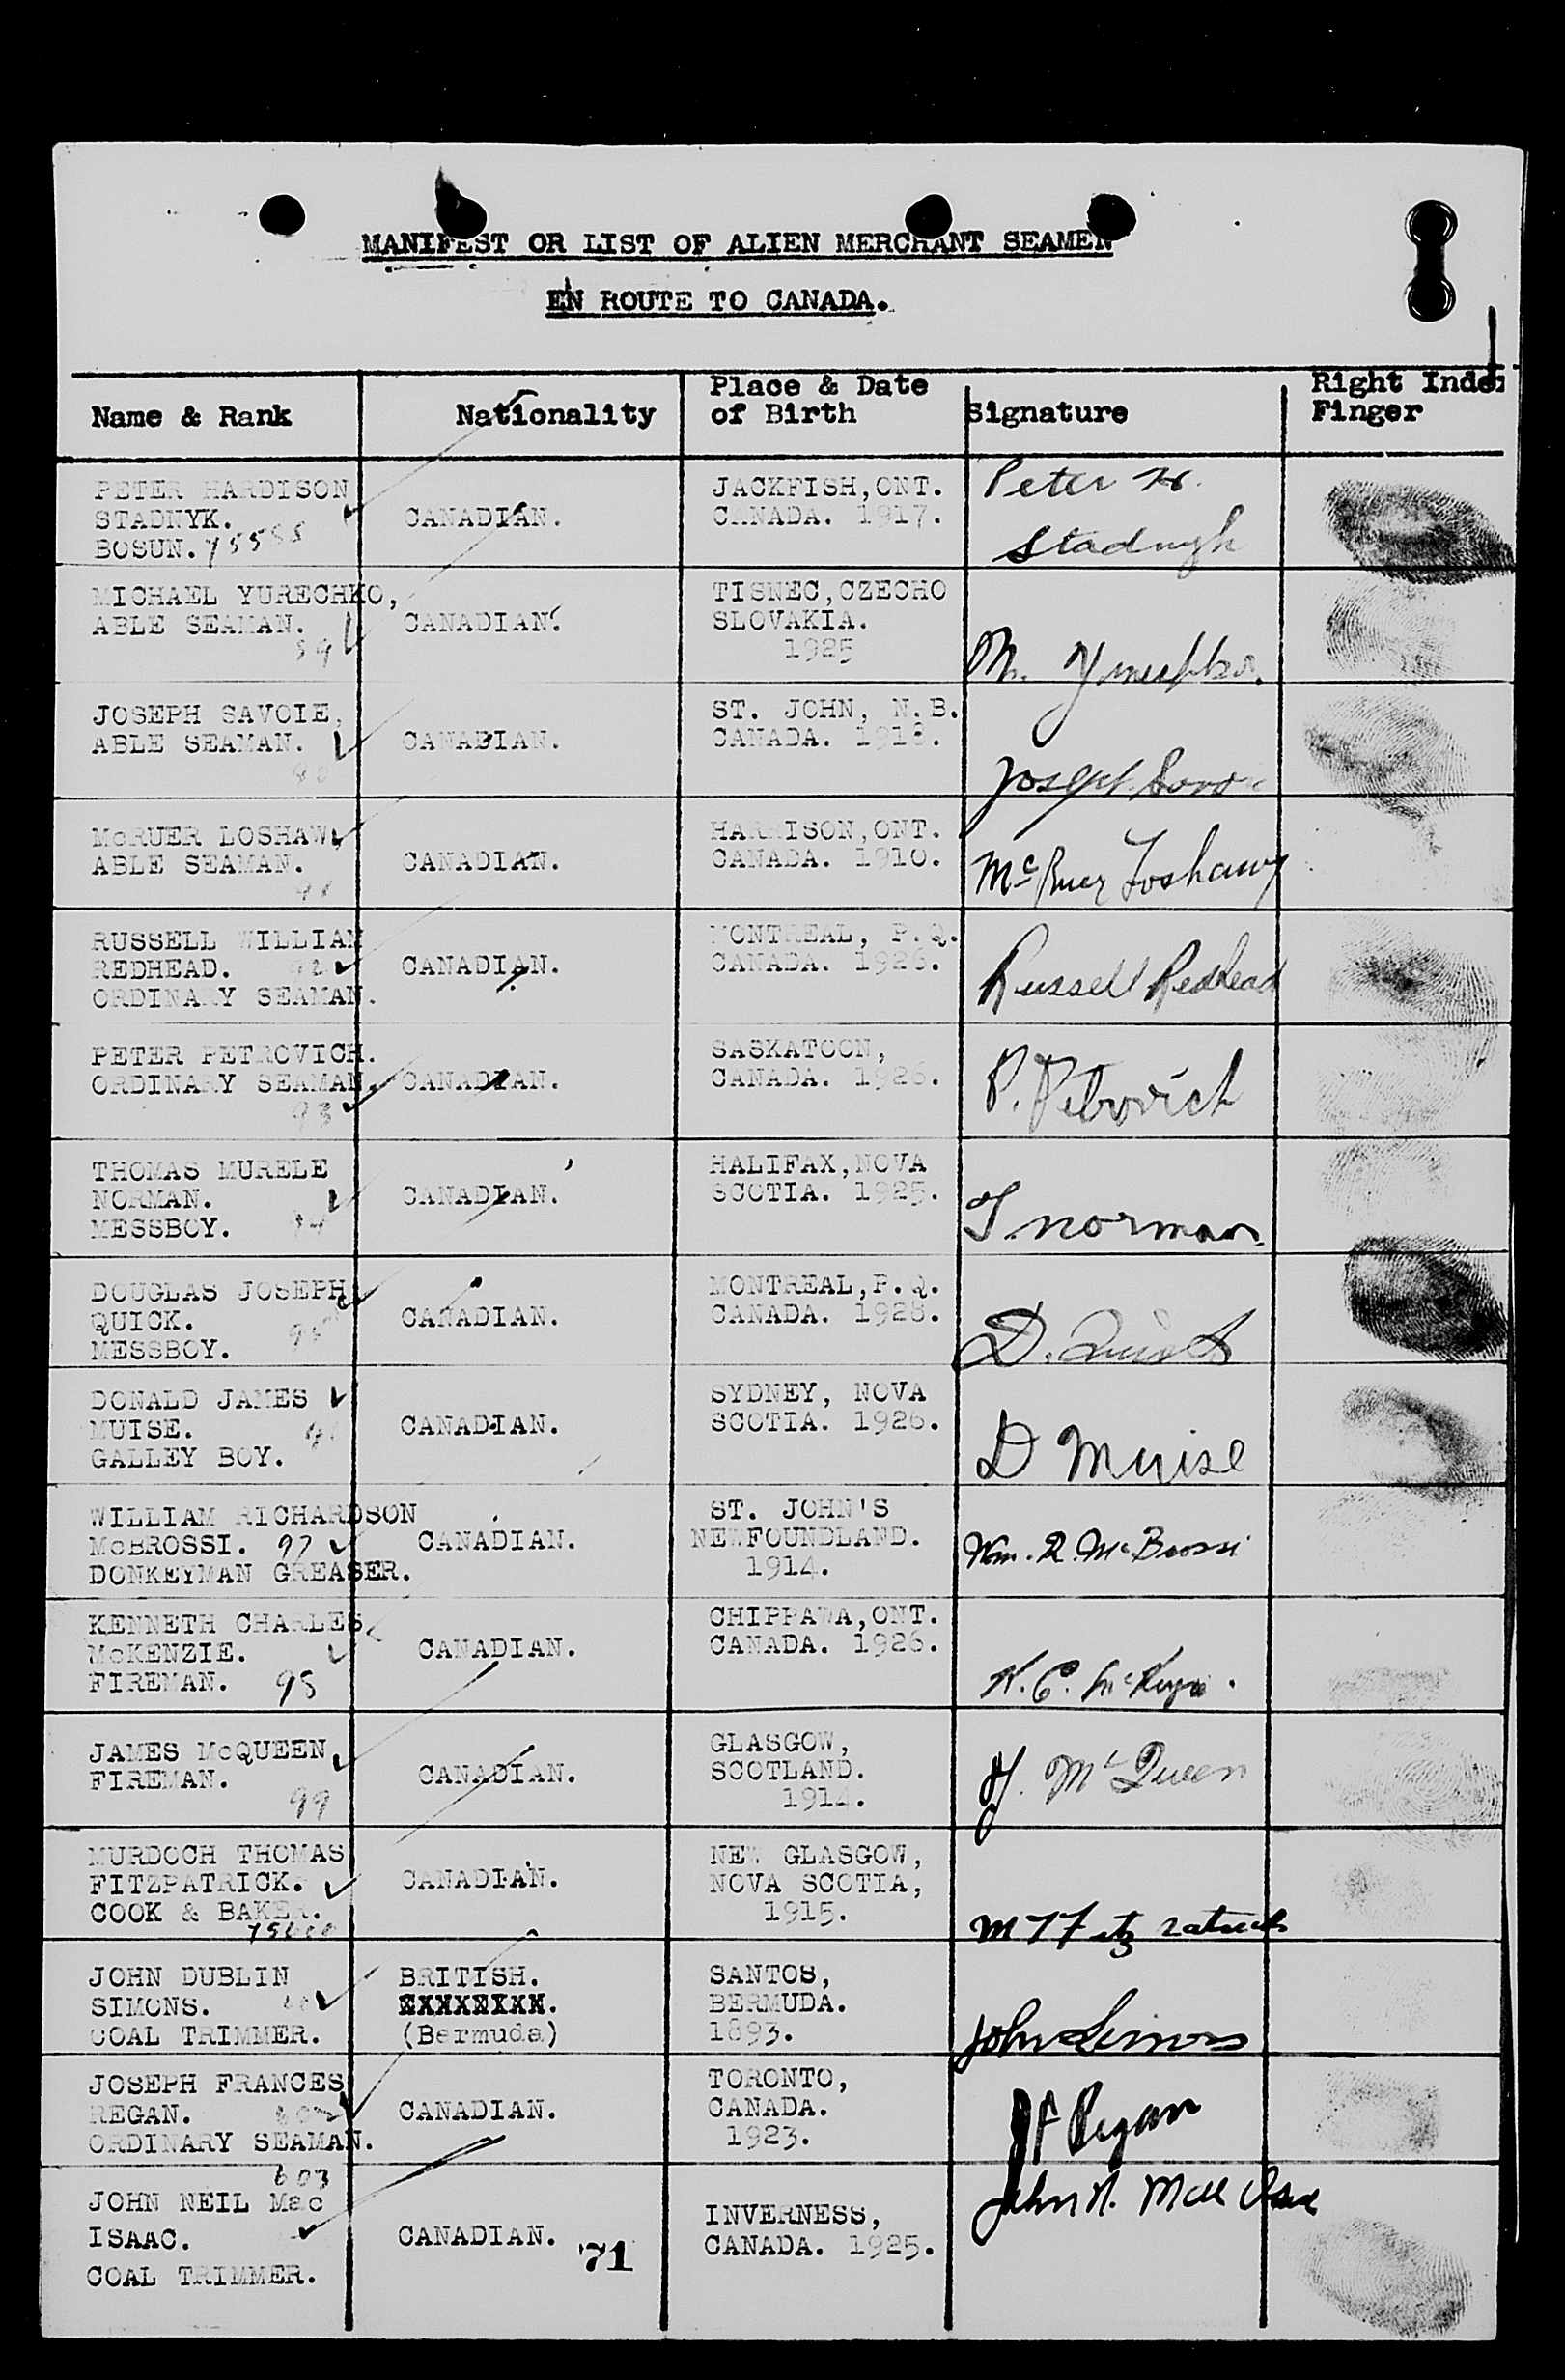 MANIFEST OR LIST OF ALIEN MERCHANT SEAMEN
EN ROUTE TO CANADA.
Name & Rank
Nationality
Place & Date
of Birth
Signature
Right Index
Finger
PETER HARDISON
STADNYK.
BOSUN.
CANADIAN.
JACKFISH,ONT.
CANADA. 1917.
Peter H.
Stadnyk
MICHAEL YURECHKO,
ABLE SEAMAN.
89
CANADIAN.
TISNEC,CZECHO
SLOVAKIA.
1925
M.
JOSEPH SAVOIE,
ABLE SEAMAN.
90
CANADIAN.
ST. JOHN, N.B.
CANADA. 1918.
Joseph
McRUER LOSHAW,
ABLE SEAMAN.
91
CANADIAN.
HARRISON,ONT.
CANADA. 1910.
McRuer Loshaw
RUSSELL WILLIAM
REDHEAD. 92
ORDINARY SEAMAN.
CANADIAN.
MONTREAL, P.Q.
CANADA. 1926.
Russell Redhead
PETER PETROVICH.
ORDINARY SEAMAN.
93
CANADIAN.
SASKATOON,
CANADA. 1926.
P. Petrovich
THOMAS MURELE
NORMAN.
MESSBOY. 94
CANADIAN.
HALIFAX,NOVA
SCOTIA. 1925.
T. Norman
DOUGLAS JOSEPH
QUICK. 95
MESSBOY.
CANADIAN.
MONTREAL,P.Q.
CANADA. 1928.
D. Quick
DONALD JAMES
MUISE. 96
GALLEY BOY.
CANADIAN.
SYDNEY, NOVA
SCOTIA. 1926.
D Muise
WILLIAM RICHARDSON
McBROSSI. 97
DONKEYMAN GREASER.
CANADIAN.
ST. JOHN'S
NEWFOUNDLAND.
1914.
Wm. R. McBrossi
KENNETH CHARLES
McKENZIE.
FIREMAN. 98
CANADIAN.
CHIPPAWA,ONT.
CANADA. 1926.
K. C. McKenzie.
JAMES McQUEEN
FIREMAN.
99
CANADIAN.
GLASGOW,
SCOTLAND.
1914.
J. McQueen
MURDOCH THOMAS
FITZPATRICK.
COOK & BAKER.
75600
CANADIAN.
NEW GLASGOW,
NOVA SCOTIA,
1915.
M T Fitzpatrick
JOHN DUBLIN
SIMONS.
COAL TRIMMER.
BRITISH.
(Bermuda)
SANTOS,
BERMUDA.
1893.
John Simons
JOSEPH FRANCES
REGAN. 602
ORDINARY SEAMAN.
CANADIAN.
TORONTO,
CANADA.
1923.
J F Regan
603
JOHN NEIL Mac
ISAAC.
COAL TRIMMER.
CANADIAN.
71
INVERNESS,
CANADA. 1925.
John N. Mac Isaac